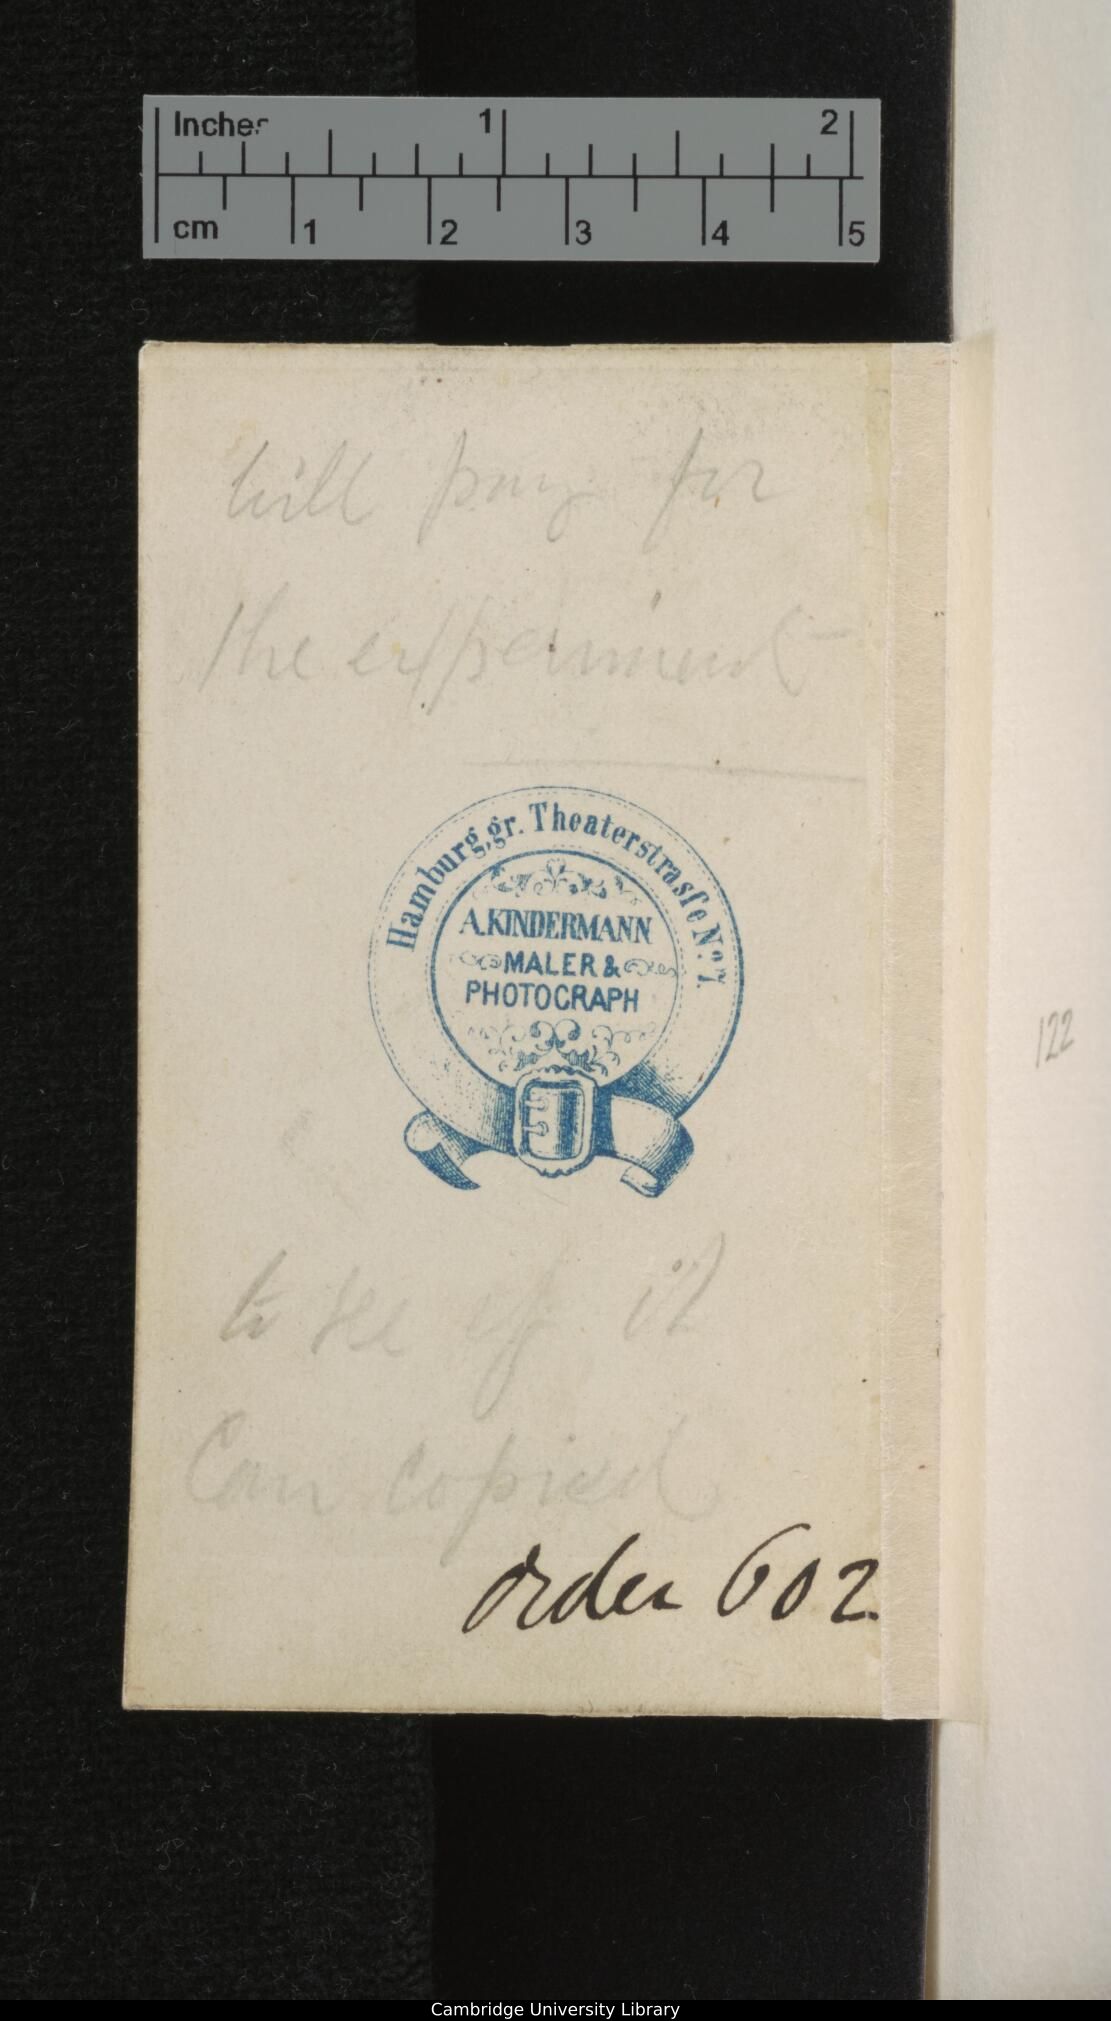 Inches 1 2
cm 1 2 3 4 5
will pay for
the experiment
Hamburg, gr. Theaterstrasſe No. 7.
A. KINDERMANN
MALER &
PHOTOGRAPH
to see if it
Can copied
order 602
122
Cambridge University Library